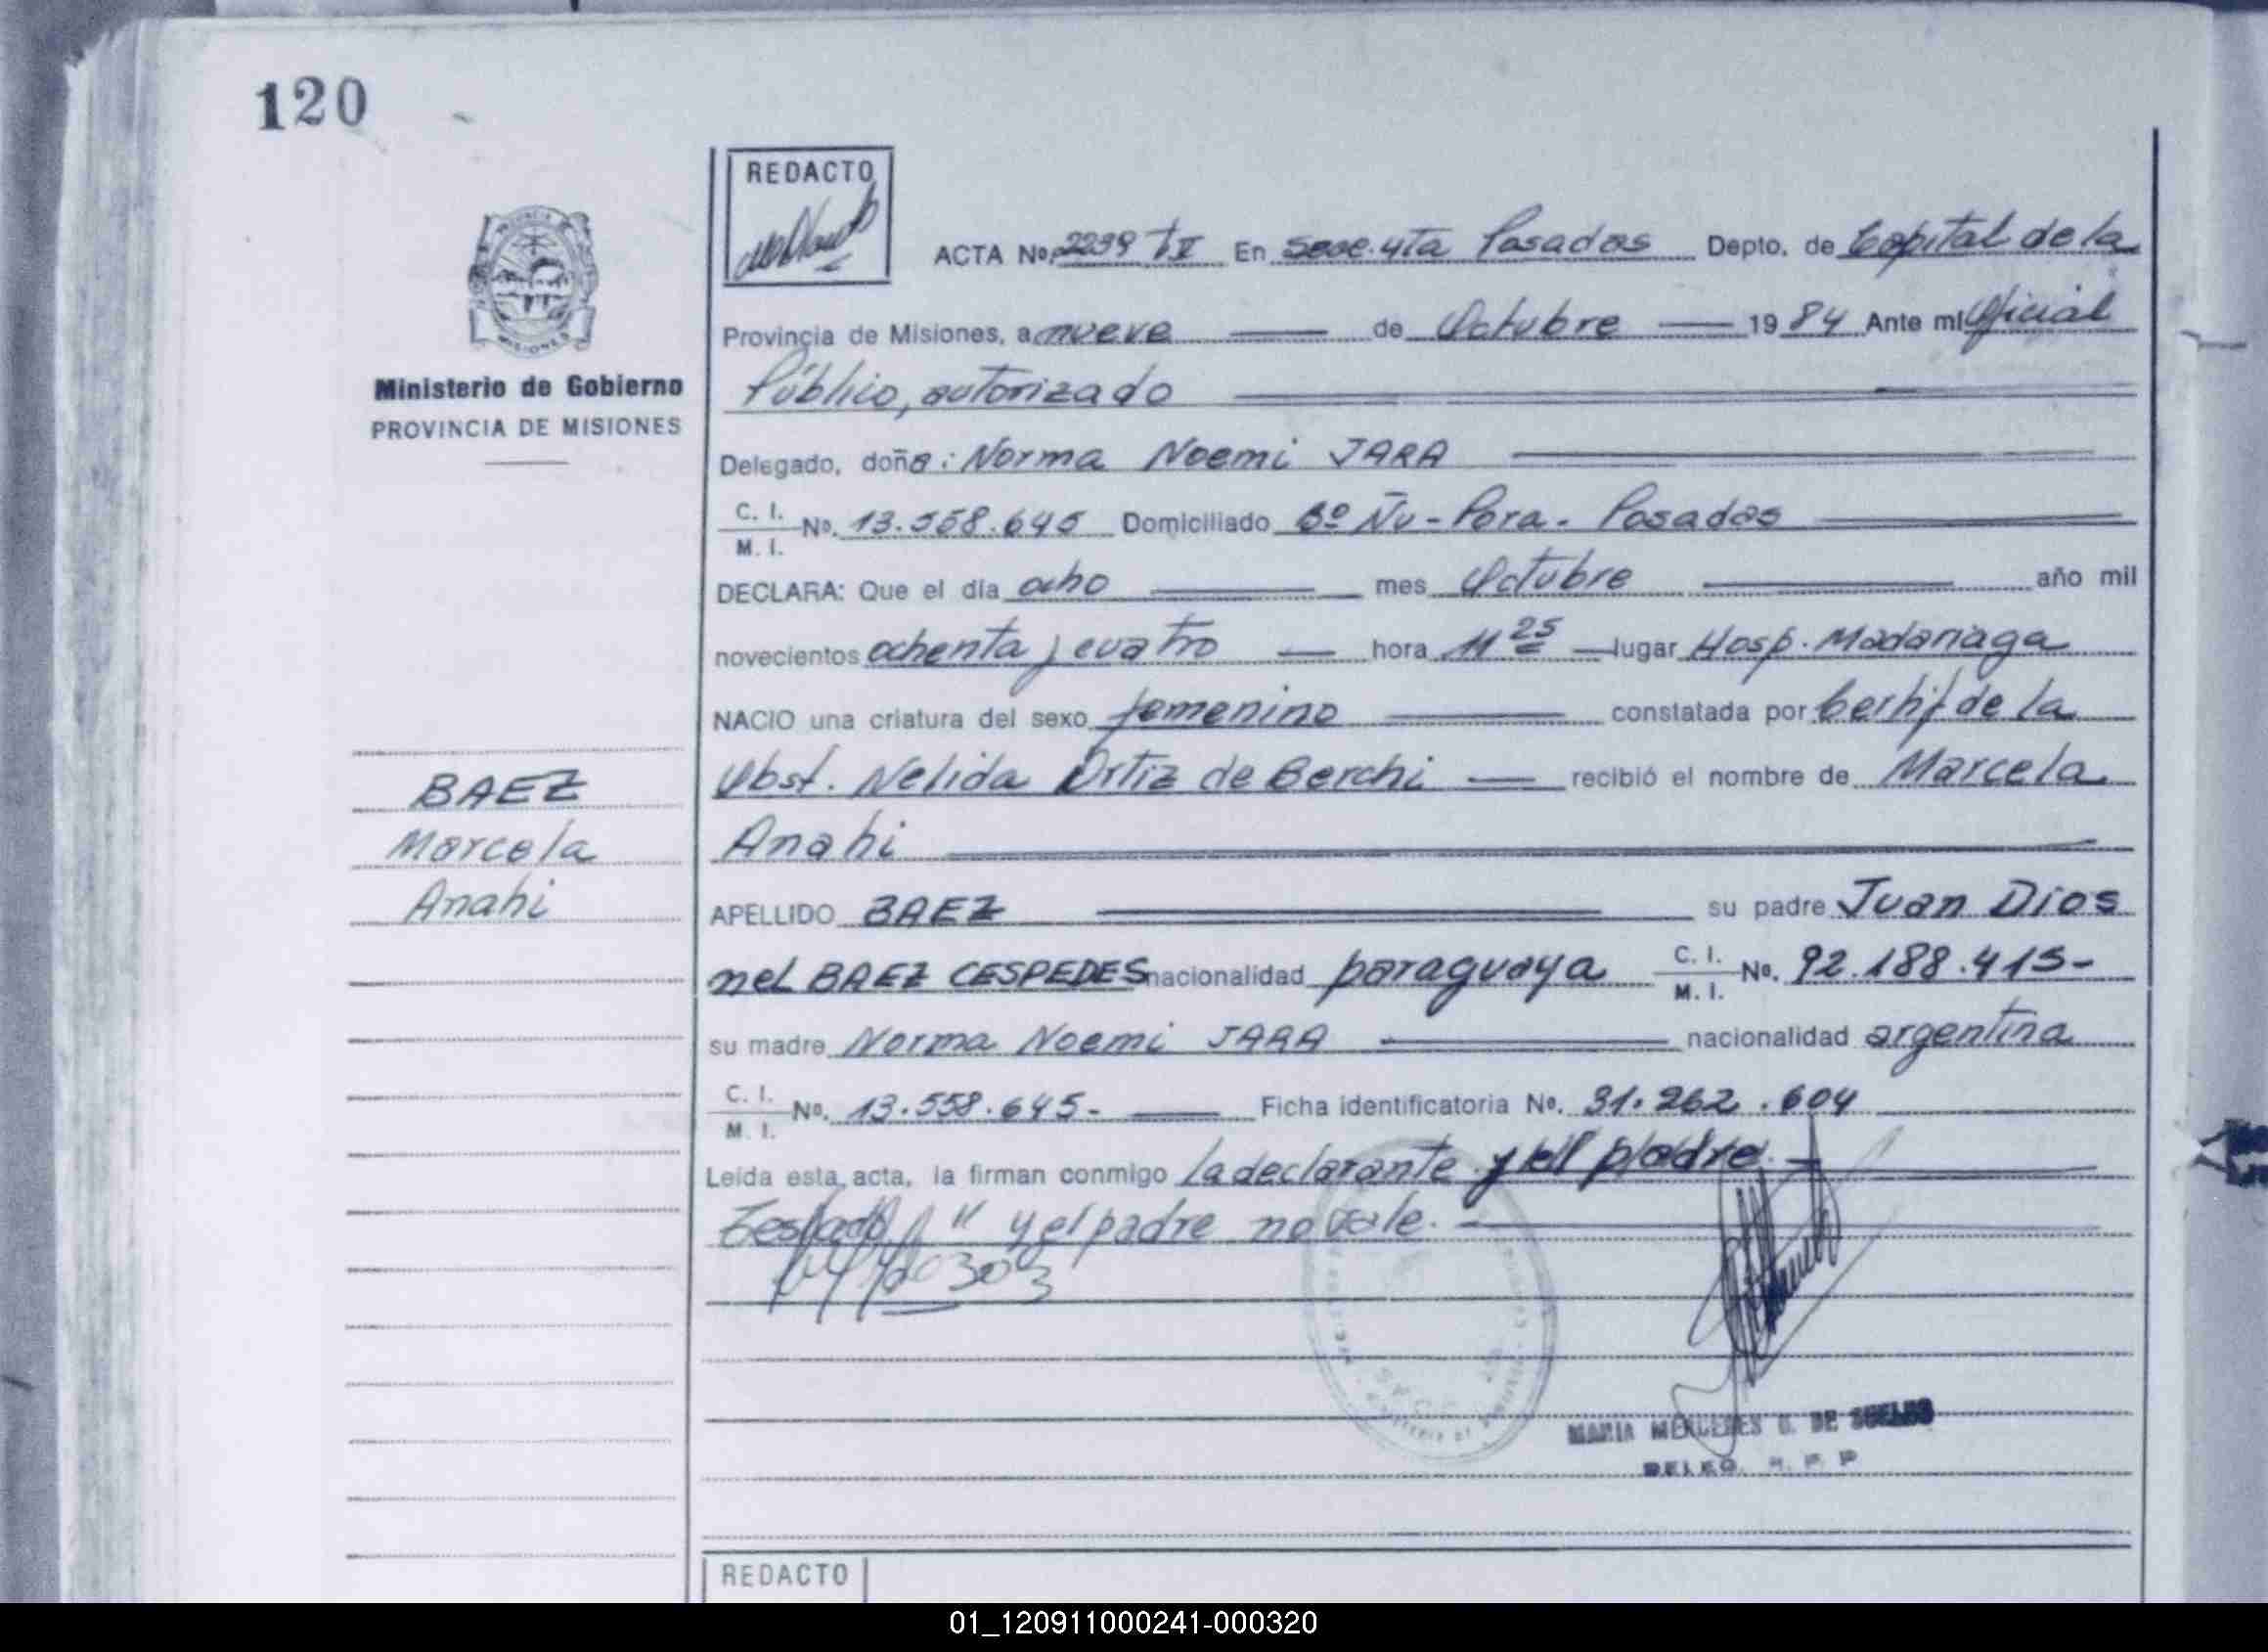 120
REDACTO
ACTA Nº 2239 tV En Secc. 4ta Posadas Depto. de Capital de la
Provincia de Misiones, a nueve de Octubre 1984 Ante mi Oficial
Público, autorizado
Ministerio de Gobierno
PROVINCIA DE MISIONES
Delegado, doña: Norma Noemi JARA
C. I.
M. I. Nº. 13.558.645 Domiciliado Bº Ñu-Pora. Posadas
DECLARA: Que el día ocho mes Octubre año mil
novecientos ochenta y cuatro hora 11 25 lugar Hosp. Madariaga
NACIO una criatura del sexo femenino constatada por Certif de la
Obst. Nelida Ortiz de Berchi recibió el nombre de Marcela
Anahi
BAEZ
Marcela
Anahi
APELLIDO BAEZ su padre Juan Dios
nel BAEZ CESPEDES nacionalidad paraguaya C. I.
M. I. Nº. 92.188.415-
su madre Norma Noemi JARA nacionalidad argentina
C. I.
M. I. Nº. 13.558.645- Ficha identificatoria Nº. 31.262.604
Leída esta acta, la firman conmigo la declarante y el padre.
Testado " y el padre no vale.
303
MARIA MERCEDES G. DE SUELDO
DELEG. R. P. P
REDACTO
01_120911000241-000320